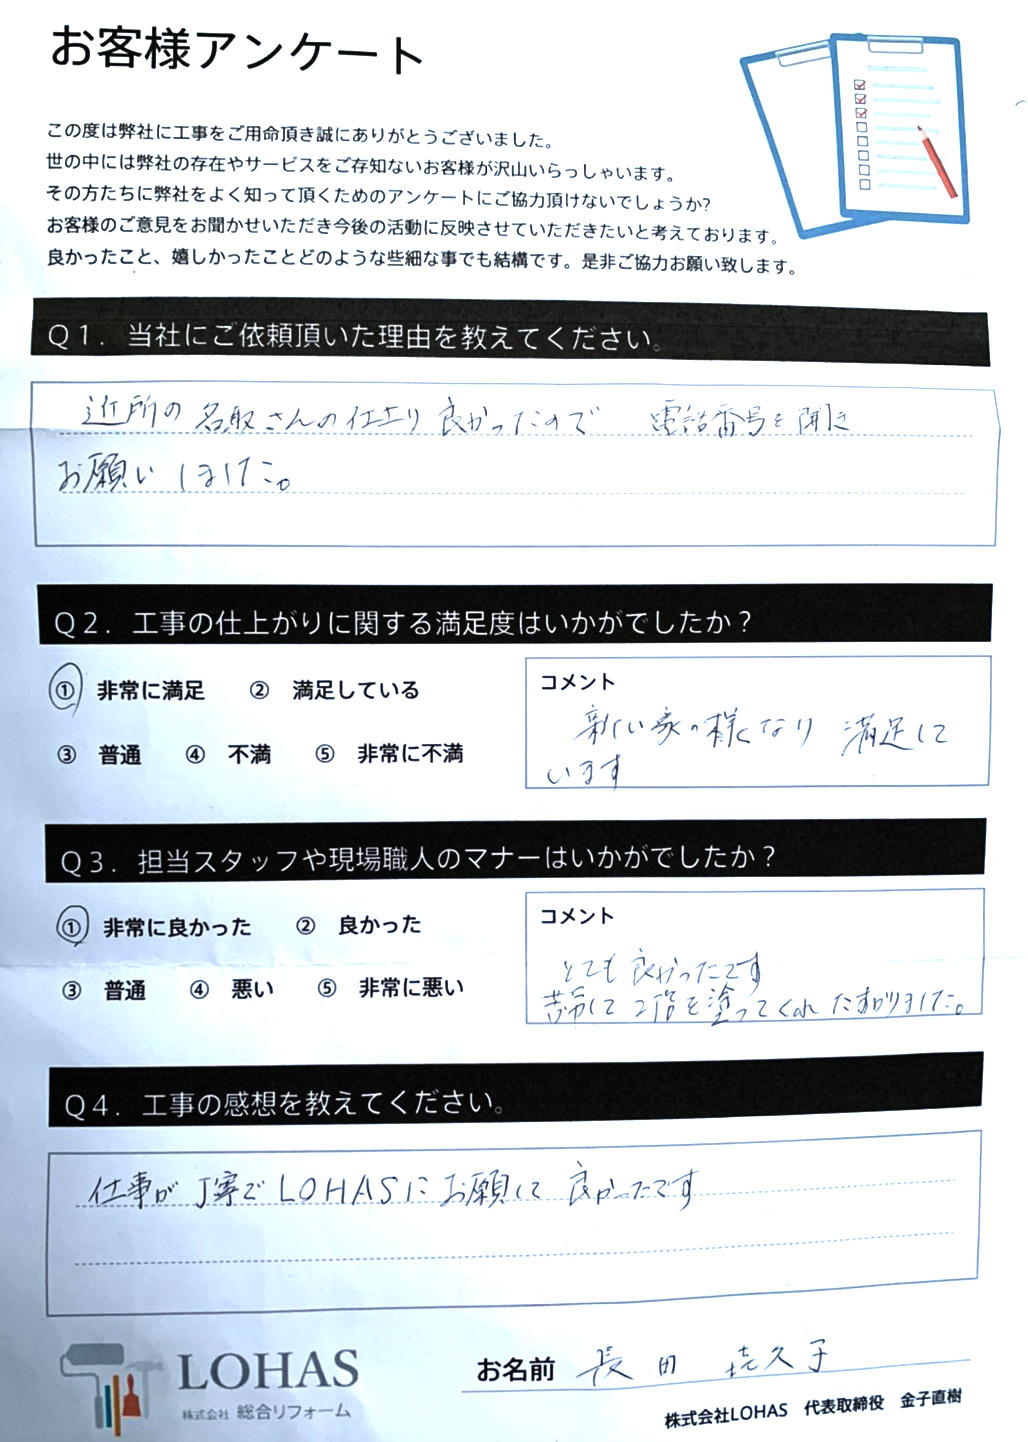 お客様アンケート
この度は弊社に工事をご用命頂き誠にありがとうございました。
世の中には弊社の存在やサービスをご存知ないお客様が沢山いらっしゃいます。
その方たちに弊社をよく知って頂くためのアンケートにご協力頂けないでしょうか?
お客様のご意見をお聞かせいただき今後の活動に反映させていただきたいと考えております。
良かったこと、嬉しかったことどのような些細な事でも結構です。是非ご協力お願い致します。
Q1. 当社にご依頼頂いた理由を教えてください。
近所の名取さんの仕上り良かったので 電話番号を聞き
お願いしました。
Q2. 工事の仕上がりに関する満足度はいかがでしたか?
① 非常に満足 ② 満足している
③ 普通 ④ 不満 ⑤ 非常に不満
コメント
新しい家の様になり 満足して
います
Q3. 担当スタッフや現場職人のマナーはいかがでしたか?
① 非常に良かった ② 良かった
③ 普通 ④ 悪い ⑤ 非常に悪い
コメント
とても良かったです
して2階を塗ってくれ たすかりました。
Q4. 工事の感想を教えてください。
仕事が丁寧でLOHASにお願いして良かったです
LOHAS
株式会社 総合リフォーム
お名前 長田 喜久子
株式会社LOHAS 代表取締役 金子直樹